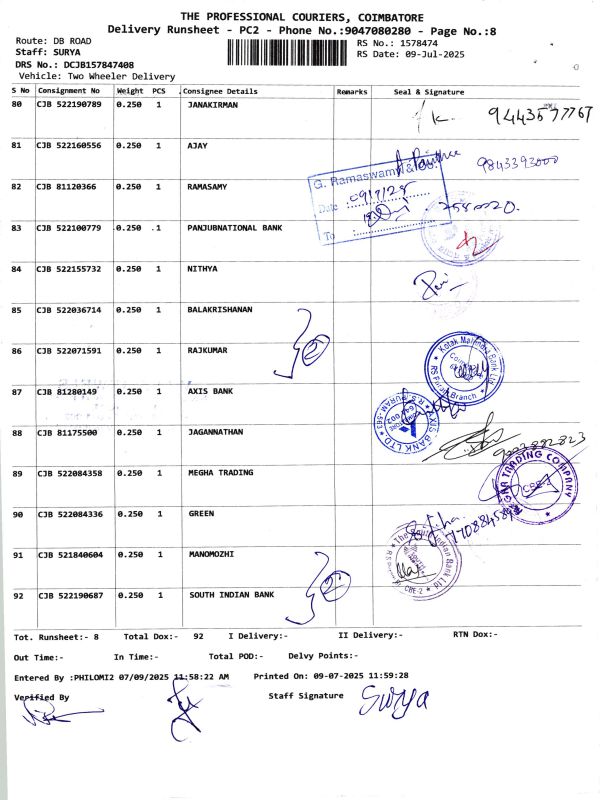 THE PROFESSIONAL COURIERS, COIMBATORE
Delivery Runsheet - PC2 - Phone No.:9047080280 - Page No.:8
Route: DB ROAD
RS No.: 1578474
Staff: SURYA
RS Date: 09-Jul-2025
DRS No.: DCJB157847408
Vehicle: Two Wheeler Delivery
S No Consignment No Weight PCS Consignee Details Remarks Seal & Signature
80 CJB 522190789 0.250 1 JANAKIRMAN
81 CJB 522160556 0.250 1 AJAY 9843393000
82 CJB 81120366 0.250 1 RAMASAMY
G. Ramaswamy & Co.
Date :
To :
83 CJB 522100779 0.250 1 PANJUBNATIONAL BANK
84 CJB 522155732 0.250 1 NITHYA
85 CJB 522036714 0.250 1 BALAKRISHANAN
2
86 CJB 522071591 0.250 1 RAJKUMAR
Kotak Mahindra Bank Ltd
RS Puram Branch
87 CJB 81280149 0.250 1 AXIS BANK
AXIS BANK LTD
88 CJB 81175500 0.250 1 JAGANNATHAN
89 CJB 522084358 0.250 1 MEGHA TRADING
TRADING COMPANY
CBE-2
90 CJB 522084336 0.250 1 GREEN
91 CJB 521840604 0.250 1 MANOMOZHI
The South Indian Bank Ltd
CBE-2
92 CJB 522190687 0.250 1 SOUTH INDIAN BANK
2
Tot. Runsheet:- 8 Total Dox:- 92 I Delivery:- II Delivery:- RTN Dox:-
Out Time:- In Time:- Total POD:- Delvy Points:-
Entered By :PHILOMI2 07/09/2025 11:58:22 AM Printed On: 09-07-2025 11:59:28
Verified By Staff Signature Surya